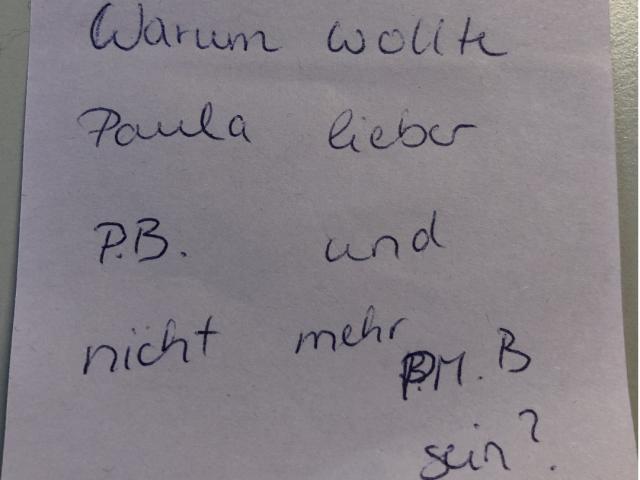 Warum wollte
Paula lieber
P.B. und
nicht mehr
P.M. B
sein?